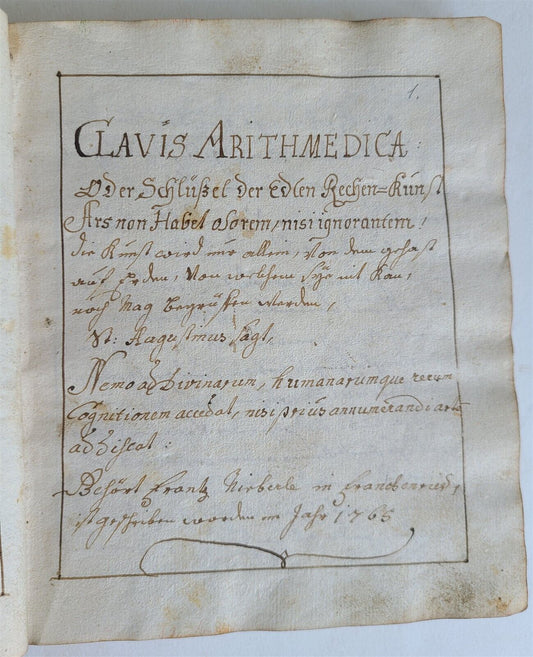 1.
CLAVIS ARITHMEDICA:
Oder Schlüßel der Edlen Rechen=Kunst
Ars non Habet osorem, nisi ignorantem,
die Kunst wird nur allein, von dem gehast
auf Erden, von welchem sye nit kan,
noch mag begriffen werden,
St: Augustinus sagt,
Nemo ad Divinarum, humanarumque rerum
Cognitionem accedat, nisi prius annumerandi artē
adhiscat:
Gehört Frantz Nieberle in
ist geschriben worden im Jahr 1765